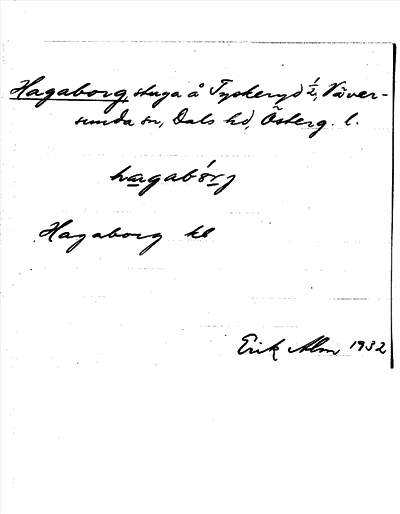 Hagaborg, stuga å Tyskeryd 1/2, Väver-
sunda sn, Dals hd, Österg. l.
hagabórj
Hagaborg kb
Erik Alm 1932